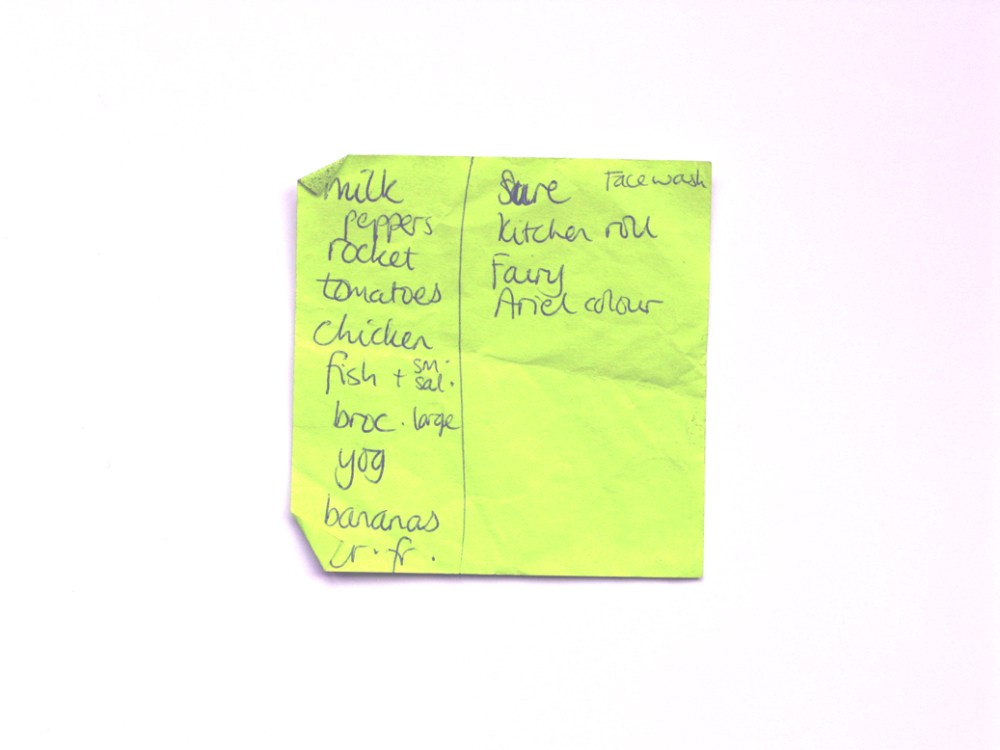 milk
peppers
rocket
tomatoes
chicken
fish + sm.
sal.
broc. large
yog
bananas
cr. fr.
Sure
Facewash
kitchen roll
Fairy
Ariel colour